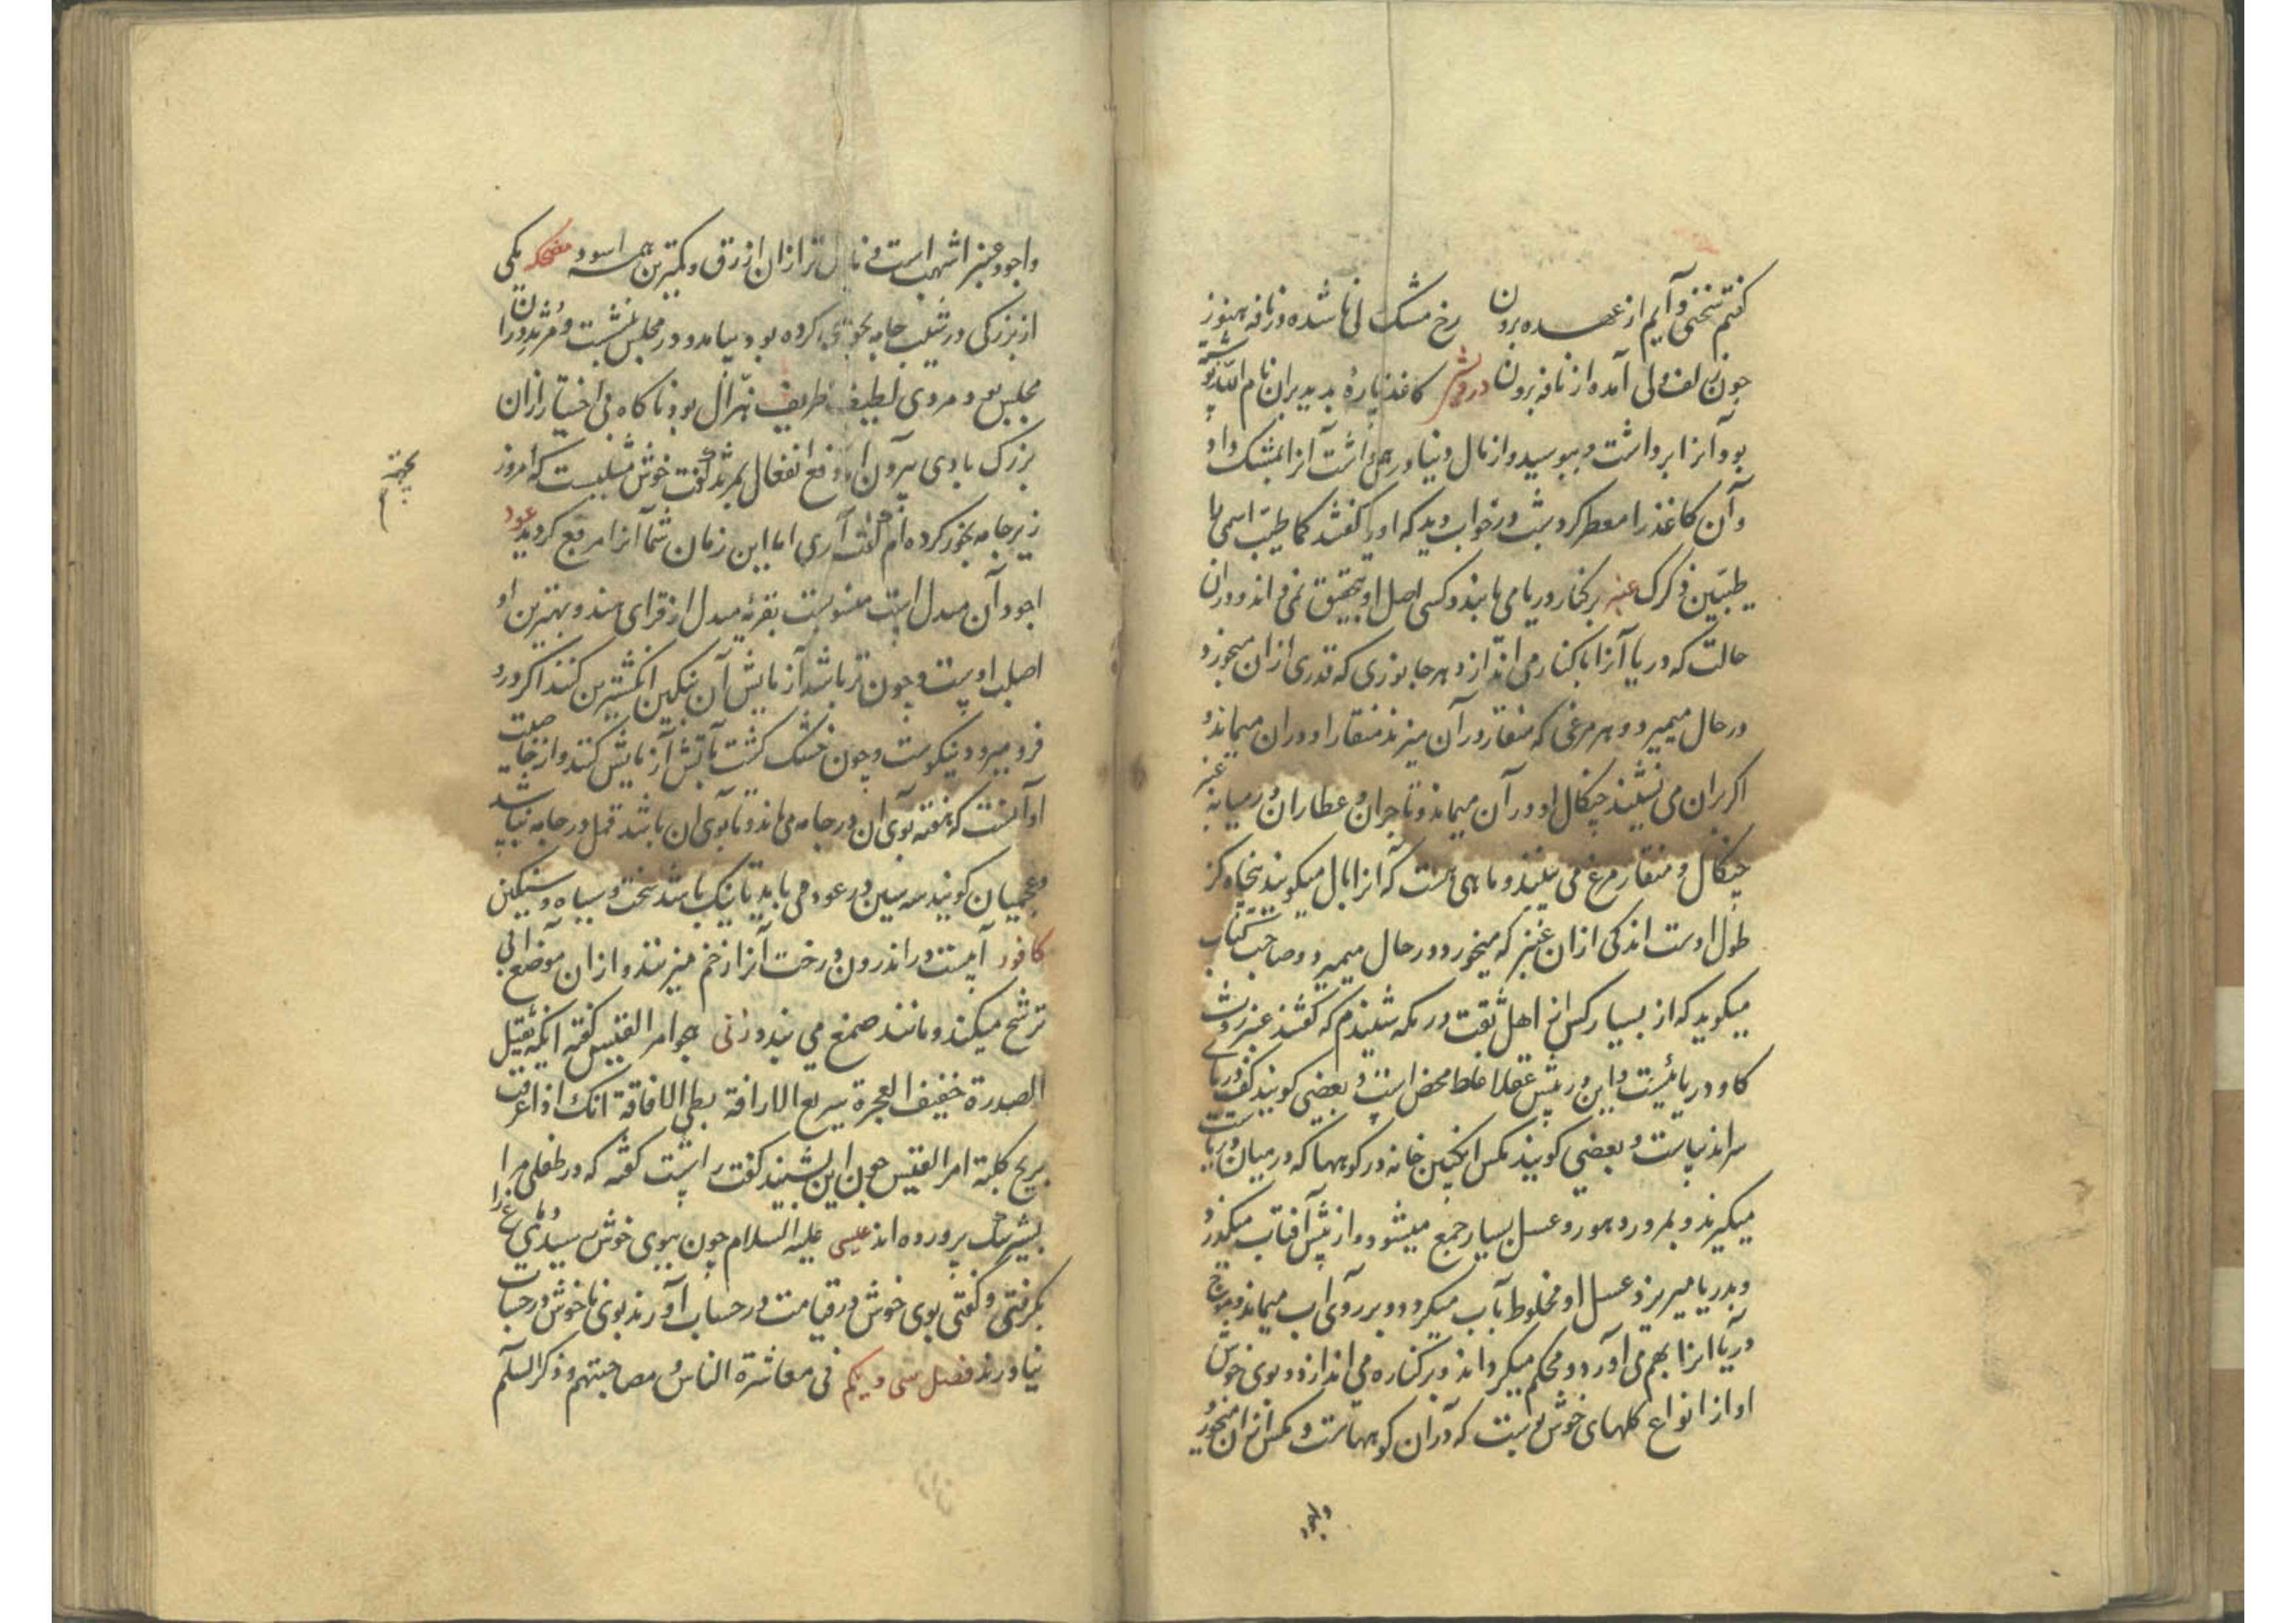 گفتم سخنی و آیم از عهده برون رخ مشک لی ناشده در نافه هنوز
چون زلف ولی آمده از نافه برون درویش کاغذ پاره بدید بران نام الله نوشته
بود آنرا برداشت و ببوسید و از مال دنیا درهمی داشت آنرا بمشک داد
و آن کاغذ را معطر کرد شب در خواب دید که او را گفتند کما طیبت اسمی لا
طیبّن ذکرک عنبر بر کنار دریا می یابند و کسی اصل او بتحقیق نمی‌داند و در ان
حالت که دریا آنرا با کنار می اندازد هر جانوری که قدری از ان میخورد
در حال میمیرد و هر مرغی که منقار در آن میزند منقار او در ان میماند و
اگر بران می نشیند چنگال او در آن میماند و تاجران و عطاران در میانه عنبر
چنگال و منقار مرغ می بینند و ماهی هست که آنرا بال میگویند پنجاه گز
طول اوست اندکی از ان عنبر که میخورد در حال میمیرد و صاحب کتاب
میگوید که از بسیار کس از اهل ثقت در مکه شنیدم که گفتند عنبر روث
گاو دریائیست و این در پیش عقلا غلط محض است و بعضی گویند کف دریای
سراندیپ است و بعضی گویند مگس انگبین خانه در کوهها که در میان دریاست
میگیرند و بمرور دهور و عسل بسیار جمع میشود و از پیش آفتاب میگذرد
و بدریا میریزد عسل او مخلوط بآب میگردد و بر روی آب میماند و موج
دریا انرا بهم می آورد و محکم میگرداند و بر کناره می اندازد و بوی خوش
او از انواع گلهای خوش بوست که در ان کوههاست و مگس از ان میخورد
و اجود
و اجود عنبر اشهب است و نازل تر ازان ازرق و کمترین همه اسود مضحکه یکی
از بزرگی در شیب جامه بخوری کرده بود بیامد و در مجلس بنشست و مرثد در ان
مجلس بود و مردی لطیف ظریف هزال بود ناگاه بی اختیار ازان
بزرگ بادی بیرون آمد دفع انفعال بمرثد گفت خوش مثلیست که امروز بجهة
زیر جامه بخور کرده ام گفت آری اما این زمان شما آنرا مرقع کردید عود
اجود آن مندل است منسوبست بقریه مندل از قرای هند و بهترین او
اصلب اوست و چون تر باشد آزمایش آن بنگین انگشترین کنند اگر درو
فرو میرود نیکوست و چون خشک گشت بآتش آزمایش کنند و از خاصیت
او آنست که هفته بوی ان در جامه می ماند و تا بوی ان باشد قمل در جامه نباشد
و عجمیان گویند سه سین در عود می باید تا نیک باشد سخت و سیاه و سنگین
کافور آبیست در اندرون درخت آنرا زخم میزنند و از ان موضع آبی
ترشح میکند و مانند صمغ می بندد زنی بامر القیس گفته انک ثقیل
الصدرة خفیف العجزة سریع الاراقة بطی الافاقة انک اذا عرقت
بریح کلبة امر القیس چون این بشنید گفت راست گفته که در طفلی مرا
بشیر سگ پرورده اند عیسی علیه السلام چون ببوی خوش رسیدی دماغ را
بگرفتی و گفتی بوی خوش در قیامت در حساب آورند بوی ناخوش در حساب
نیاورند فصل سی و یکم فی معاشرة الناس و مصاحبتهم و ذکر السلم